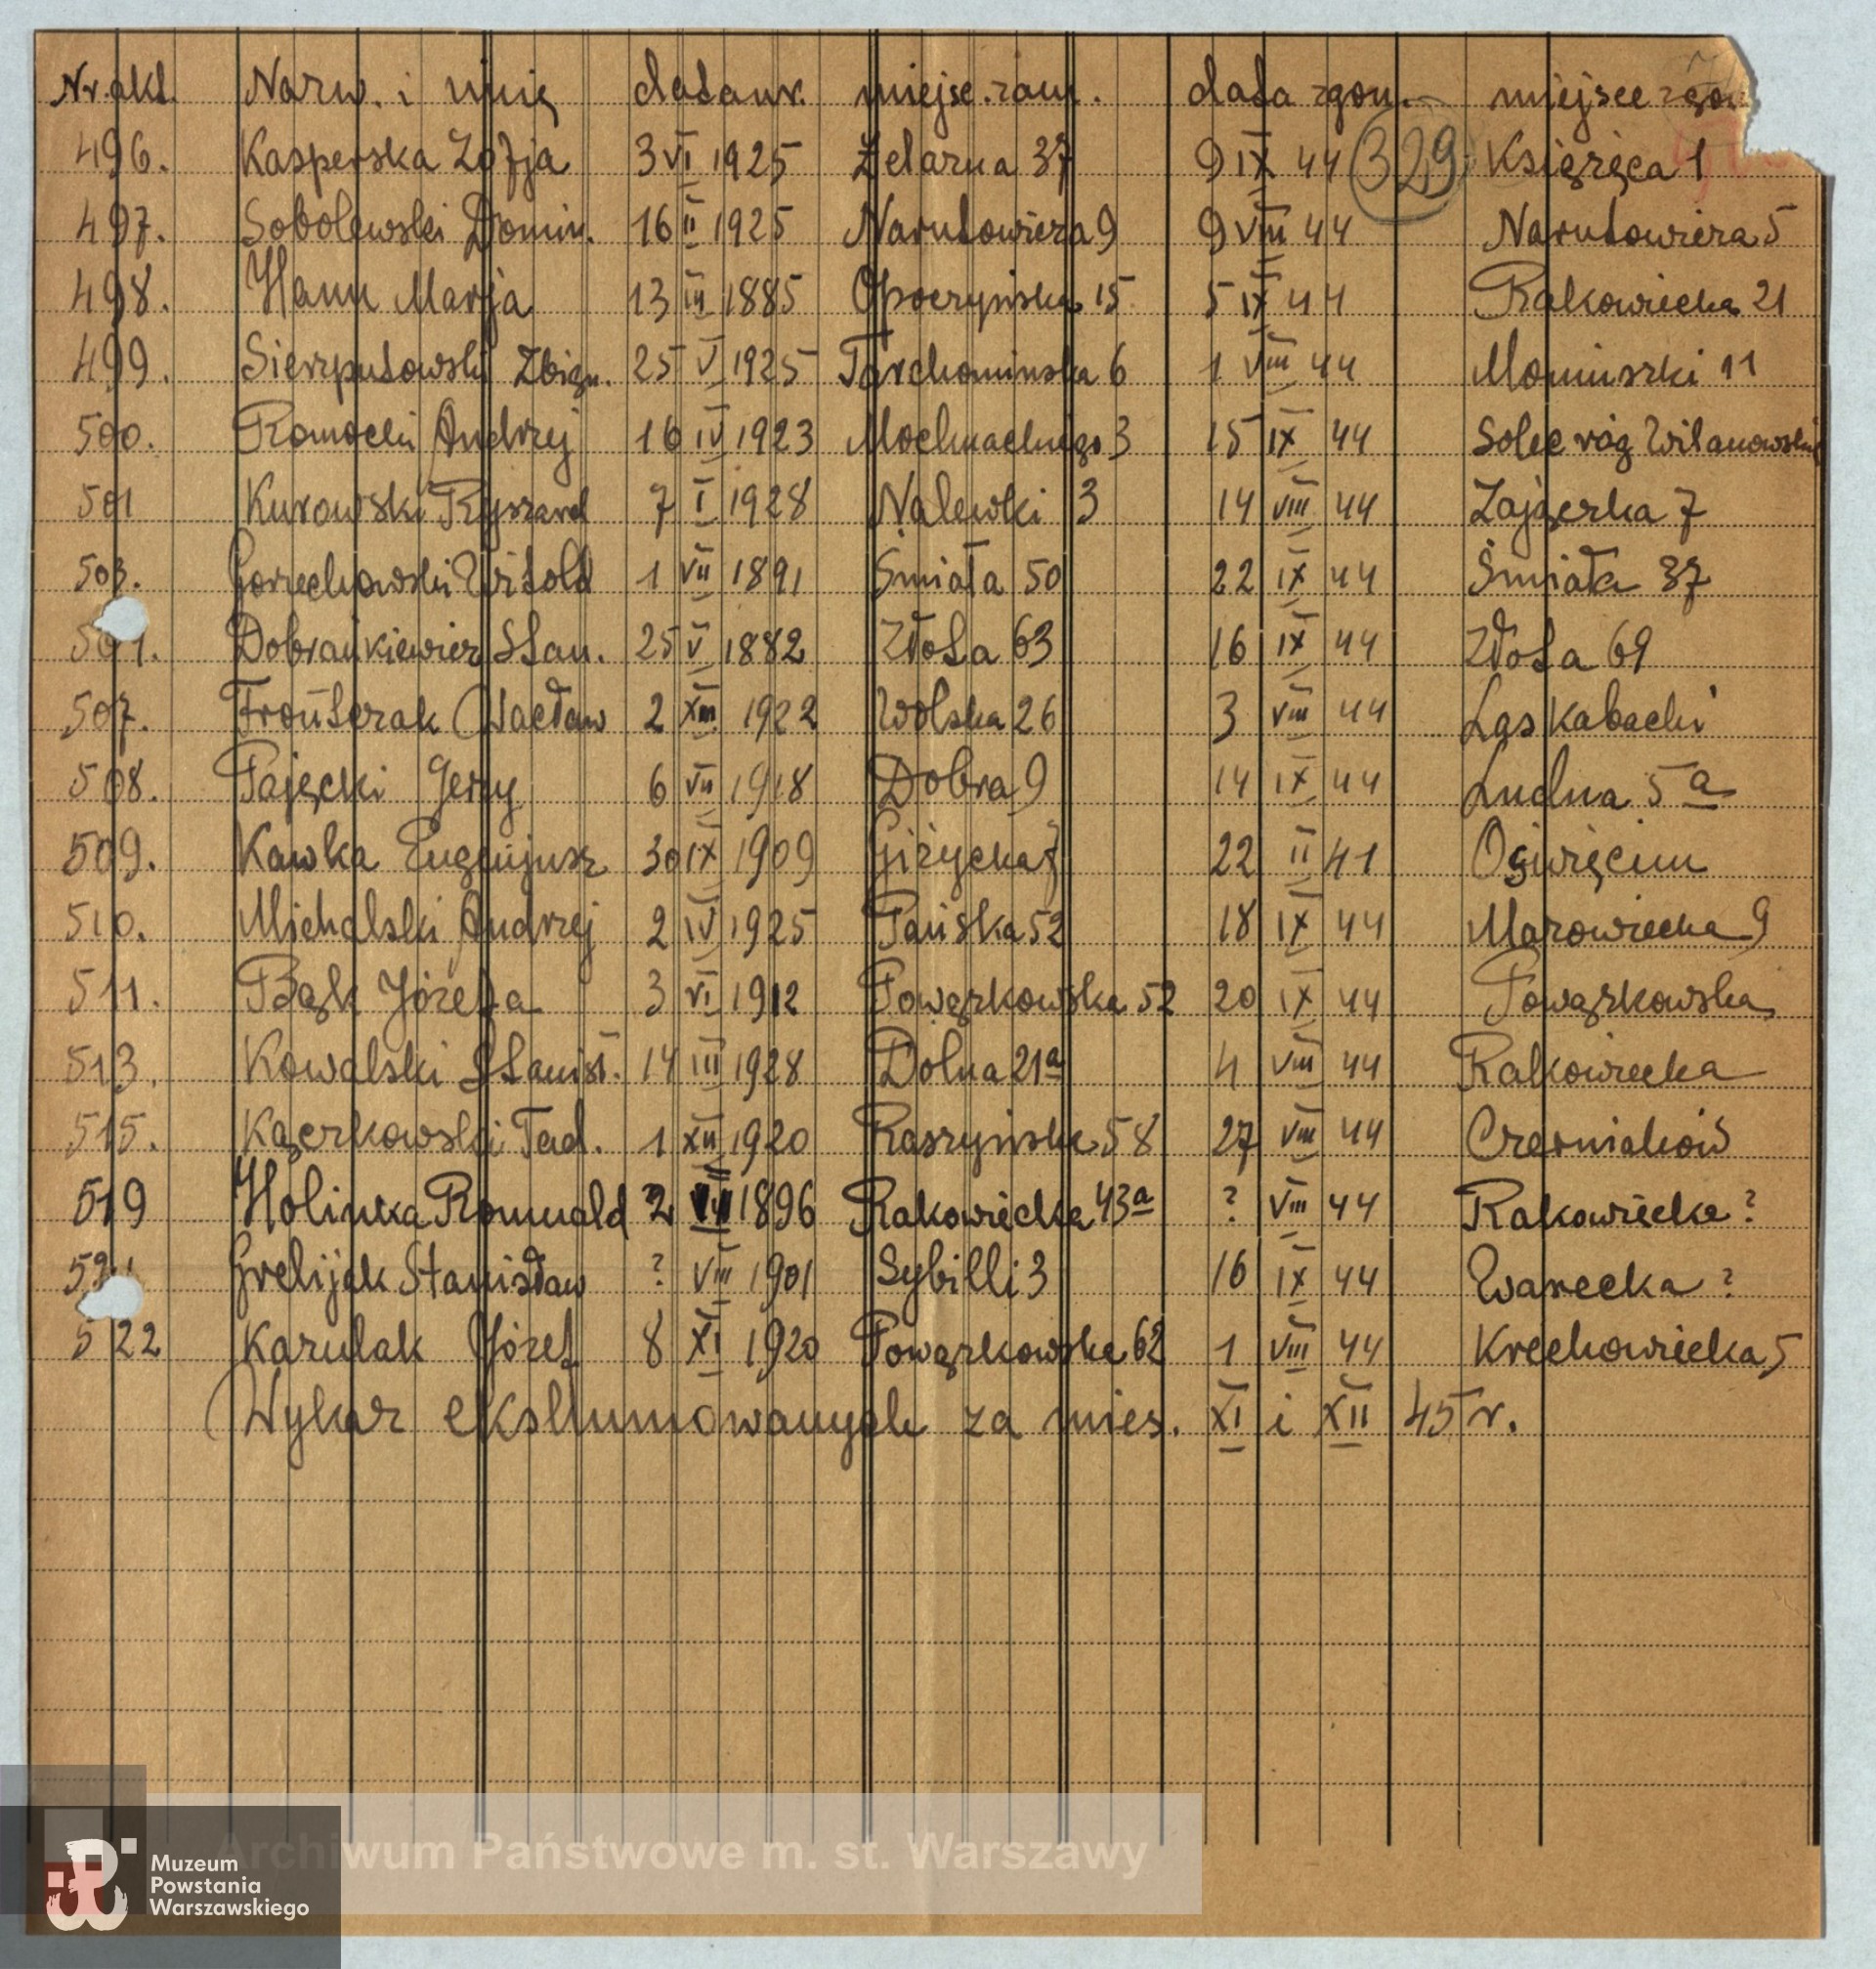 Nr. akt. Nazw. i imię data ur. miejsc. zam. data zgon. miejsce zgon
496. Kasperska Zofja 3 VI 1925 Żelazna 37 9 IX 44 329 Książęca 1
497. Sobolewski Domin. 16 II 1925 Narutowicza 9 9 VIII 44 Narutowicza 5
498. Hann Marja 13 III 1885 Opoczyńska 15 5 IX 44 Rakowiecka 21
499. Sierzputowski Zbign. 25 V 1925 Tarchominska 6 1 VIII 44 Moniuszki 11
500. Romocki Andrzej 16 IV 1923 Mochnackiego 3 15 IX 44 Solec róg Wilanowskiej
501 Kurowski Ryszard 7 I 1928 Nalewki 3 14 VIII 44 Zajączka 7
503. Gorzechowski Witold 1 VII 1891 Śmiała 50 22 IX 44 Śmiała 37
504. Dobrańkiewicz Stan. 25 V 1882 Złota 63 16 IX 44 Złota 69
507. Frontczak Wacław 2 XII 1922 Wolska 26 3 VIII 44 Las Kabacki
508. Pajęcki Jerzy 6 VII 1918 Dobra 9 14 IX 44 Ludna 5a
509. Kawka Eugenjusz 30 IX 1909 Giżycka 7 22 II 41 Oświęcim
510. Michalski Andrzej 2 IV 1925 Pańska 52 18 IX 44 Mazowiecka 9
511. Bąk Józefa 3 VI 1912 Powązkowska 52 20 IX 44 Powązkowska
513. Kowalski Stanisł. 14 III 1928 Dolna 21a 4 VIII 44 Rakowiecka
515. Kączkowski Tad. 1 XII 1920 Raszyńska 58 27 VIII 44 Czerniaków
519 Holinka Romuald 2 VII 1896 Rakowiecka 43a ? VIII 44 Rakowiecka ?
Grelijak Stanisław ? VIII 1901 Sybilli 3 16 IX 44 Warecka ?
522 Karulak Józef 8 XI 1920 Powązkowska 62 1 VIII 44 Krechowiecka 5
Wykaz ekshumowanych za mies. XI i XII 45 r.
Archiwum Państwowe m. st. Warszawy
Muzeum
Powstania
Warszawskiego